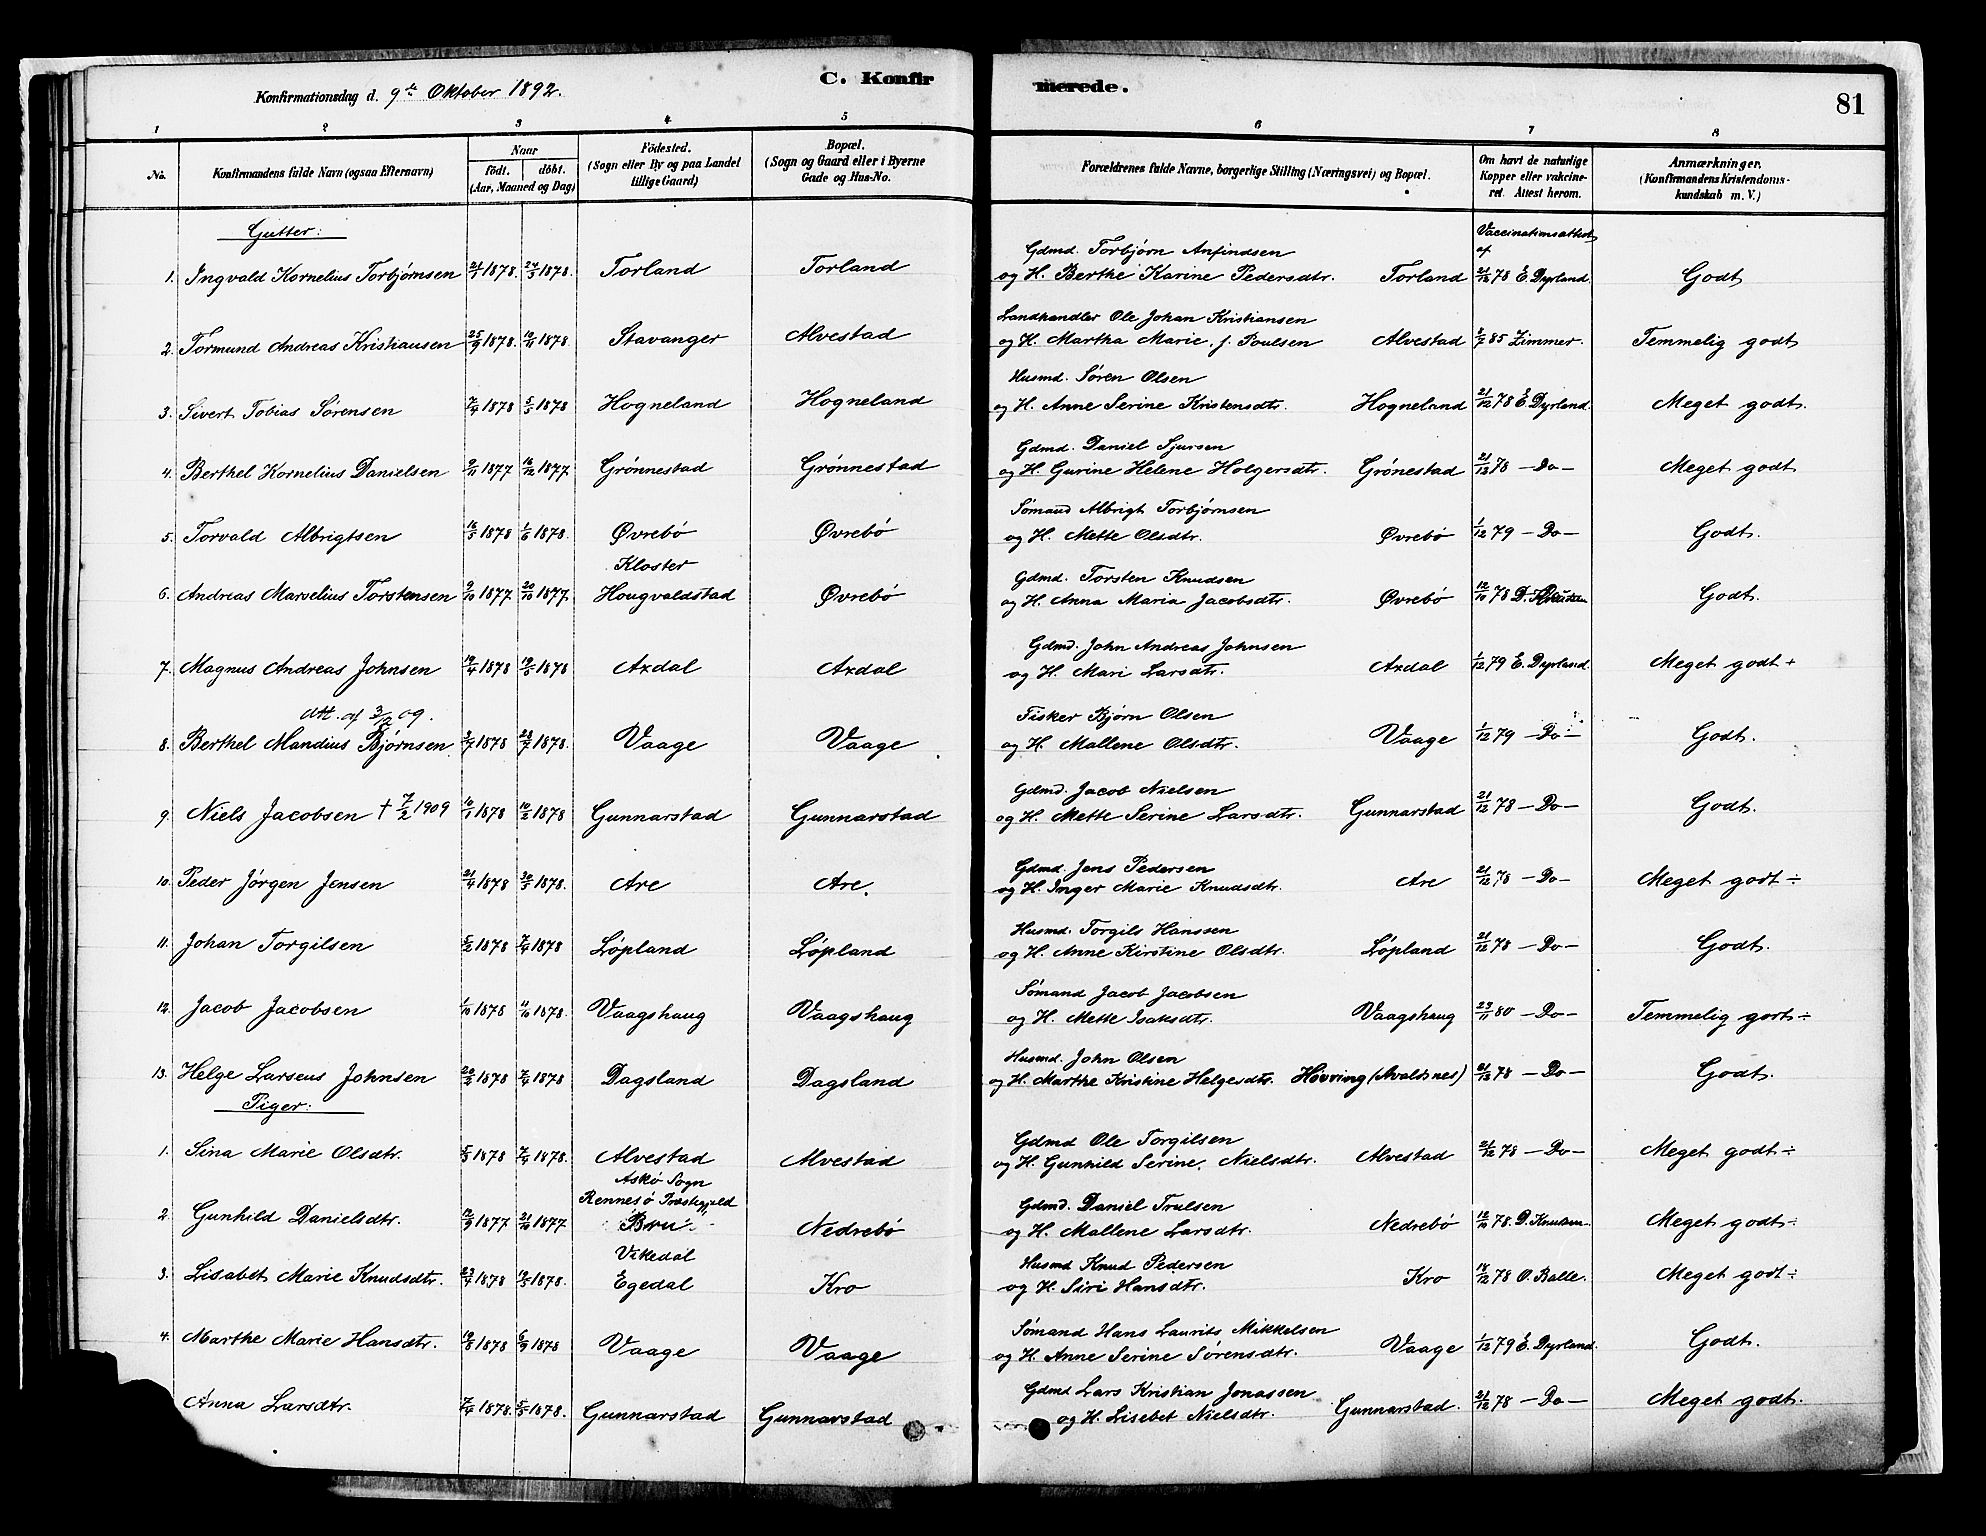 C. Konfirmerede.
81
Konfirmationsdag d. 9de Oktober 1892.
1 2 3 4 5 6 7 8
No. Konfirmandens fulde Navn (ogsaa Efternavn) Naar födt. döbt. (Aar, Maaned og Dag) Födested. (Sogn eller By og paa Landet tillige Gaard) Bopæl. (Sogn og Gaard eller i Byerne Gade og Hus-No. Forældrenes fulde Navne, borgerlige Stilling (Næringsvei) og Bopæl. Om havt de naturlige Kopper eller vakcineret. Attest herom. Anmærkninger. (Konfirmandens Kristendomskundskab m. V.)
Gutter:
Vaccinationsattest af
Gdmd. Torbjørn Anfindsen
1. Ingvald Kornelius Torbjørnsen 1878. 24/3 1878. Torland Torland og H. Berthe Karine Pedersdtr. Torland 21/12 78 E. Dyrland. Godt
Landhandler Ole Johan Kristiansen
2. Tormund Andreas Kristiansen 25/9 1878. 10/11 1878. Stavanger Alvestad og H. Martha Marie, f. Poulsen Alvestad 85 Zimmer. Temmelig godt
Husmd. Søren Olsen
3. Sivert Tobias Sørensen 7/4 1878 5/5 1878 Hogneland Hogneland og H. Anne Serine Kristensdtr. Hogneland 21/12 78 E. Dyrland. Meget godt.
Gdmd. Daniel Sjursen
4. Berthel Kornelius Danielsen 9/11 1877 16/12 1877. Grønnestad Grønnestad og H. Gurine Helene Holgersdtr. Grønestad 21/12 78 — Do — Meget godt
Sømand Albrigt Torbjørnsen
5. Torvald Albrigtsen 16/5 1878 1/6 1878. Øvrebø Øvrebø og H. Mette Olsdtr. Øvrebø 1/12 79 — Do — Godt.
Kloster
Gdmd. Torsten Knudsen
6. Andreas Marselius Torstensen 9/10 1877. 20/10 1877. Hougvaldstad Øvrebø og H. Anna Maria Jacobsdtr. Øvrebø 12/10 78 D. Godt.
Gdmd. John Andreas Johnsen
7. Magnus Andreas Johnsen 19/4 1878 19/5 1878 Axdal Axdal og H. Mari Larsdtr. Axdal 1/12 79 E. Dyrland. Meget godt +
att. af 3/2 09.
Fisker Bjørn Olsen
8. Berthel Mandius Bjørnsen 3/7 1878 28/7 1878. Vaage Vaage og H. Mallene Olsdtr. Vaage 1/12 79 — Do — Godt.
Gdmd. Jacob Nielsen
9. Niels Jacobsen † 7/2 1909 10/1 1878 10/2 1878 Gunnarstad Gunnarstad og H. Mette Serine Larsdtr. Gunnarstad 21/12 78 — Do — Godt.
Gdmd. Jens Pedersen
10. Peder Jørgen Jensen 21/4 1878 30/5 1878. Are Are. og H. Inger Marie Knudsdtr. Are 21/12 78 — Do — Meget godt ÷
Husmd. Torgils Hanssen
11. Johan Torgilsen 5/2 1878 7/4 1878 Løpland Løpland og H. Anne Kirstine Olsdtr. Løpland 21/12 78 — Do — Godt.
Sømand Jacob Jacobsen
12. Jacob Jacobsen 1/10 1878 11/10 1878. Vaagshaug Vaagshaug og H. Mette Isaksdtr. Vaagshaug 23/11 80 — Do — Temmelig godt ÷
Husmd. John Olsen
13. Helge Larseus Johnsen 20/2 1878 7/4 1878 Dagsland Dagsland og H. Marthe Kristine Helgesdtr. Høvring (Avaldsnes) 21/12 78 — Do — Godt.
Piger:
Gdmd Ole Torgilsen
1. Sina Marie Olsdtr. 5/3 1878 7/4 1878. Alvestad Alvestad og H. Gunhild Serine. Nielsdtr. Alvestad 21/12 78 — Do — Meget godt ÷
Askø Sogn
Rennesø Præstegjeld
Gdmd. Daniel Trulsen
2. Gunhild Danielsdtr. 12/9 1877 21/10 1877 Bru Nedrebø og H. Mallene Larsdtr. Nedrebø 12/10 78. D. Knutsen. Meget godt ÷
Vikedal
Husmd Knud Pedersen
3. Lisabet Marie Knudsdtr. 23/4 1878 19/5 1878. Egedal Kro og H. Siri Hansdtr. Kro 78 O. Balle. Meget godt ÷
Sømand Hans Laurits Mikkelsen
4. Marthe Marie Hansdtr. 19/8 1878 6/9 1878 Vaage Vaage og H. Anne Serine Sørensdtr. Vaage 1/12 79 E. Dyrland. Godt.
Gdmd Lars Kristian Jonassen
Anna Larsdtr. 7/4 1878. 5/5 1878. Gunnarstad Gunnarstad og H. Lisebet Nielsdtr. Gunnarstad. 21/12 78 — Do — Meget godt.